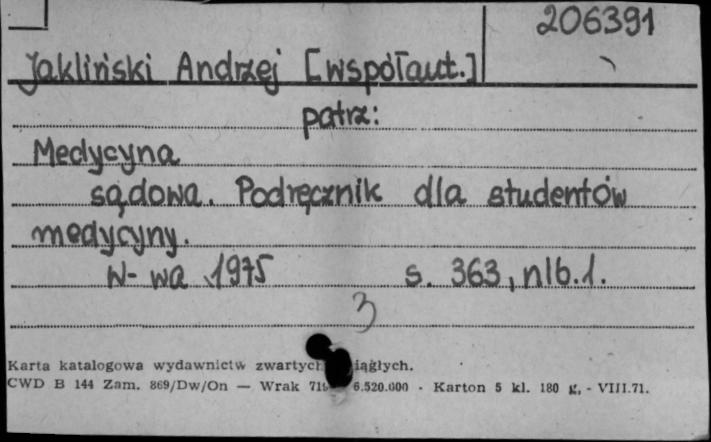 206391
Jakliński Andrzej [współaut.]
patrz:
Medycyna
sądowa. Podręcznik dla studentów
medycyny.
W-wa 1975 s. 363, nlb. 1.
3
Karta katalogowa wydawnictw zwartych iągłych.
CWD B 144 Zam. 869/Dw/On — Wrak 71 6.520.000 - Karton 5 kl. 180 g, - VIII.71.